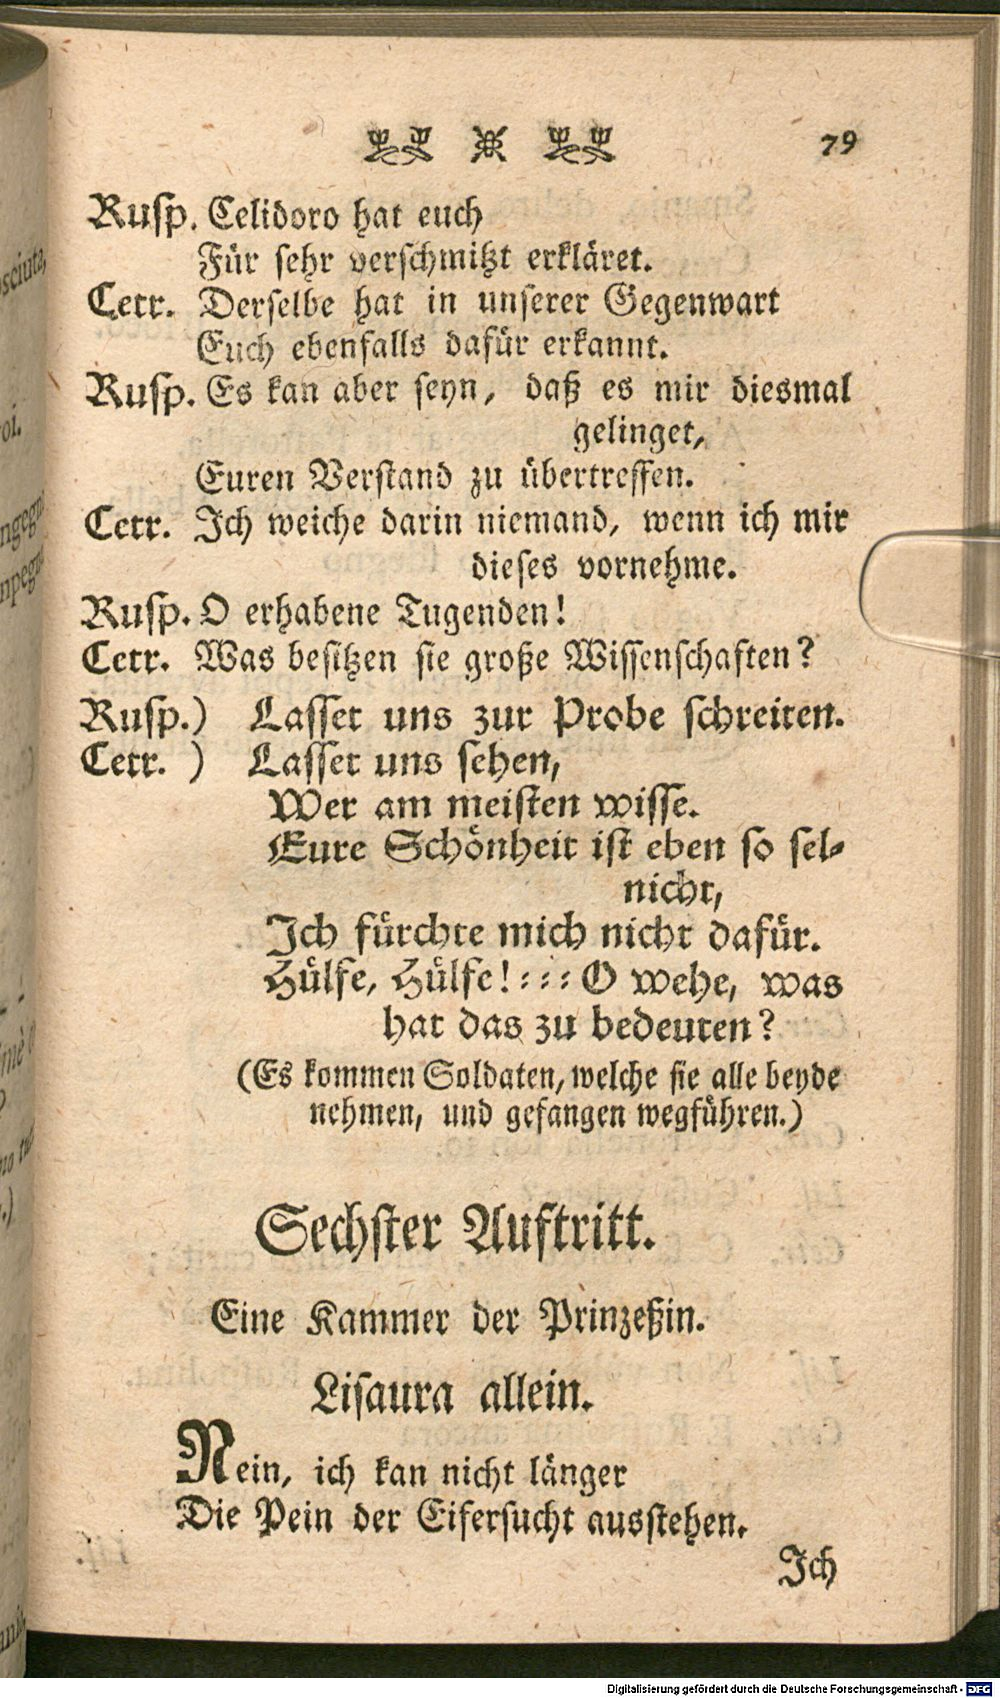 79
Rusp. Celidoro hat euch
Für sehr verschmitzt erkläret.
Cetr. Derselbe hat in unserer Gegenwart
Euch ebenfalls dafür erkannt.
Rusp. Es kan aber seyn, daß es mir diesmal
gelinget,
Euren Verstand zu übertreffen.
Cetr. Ich weiche darin niemand, wenn ich mir
dieses vornehme.
Rusp. O erhabene Tugenden!
Cetr. Was besitzen sie große Wissenschaften?
Rusp.) Lasset uns zur Probe schreiten.
Cetr. ) Lasset uns sehen,
Wer am meisten wisse.
Eure Schönheit ist eben so sel-
nicht,
Ich fürchte mich nicht dafür.
Hülfe, Hülfe! :::O wehe, was
hat das zu bedeuten?
(Es kommen Soldaten, welche sie alle beyde
nehmen, und gefangen wegführen.)
Sechster Auftritt.
Eine Kammer der Prinzeßin.
Lisaura allein.
Nein, ich kan nicht länger
Die Pein der Eifersucht ausstehen.
Ich
Digitalisierung gefördert durch die Deutsche Forschungsgemeinschaft - DFG